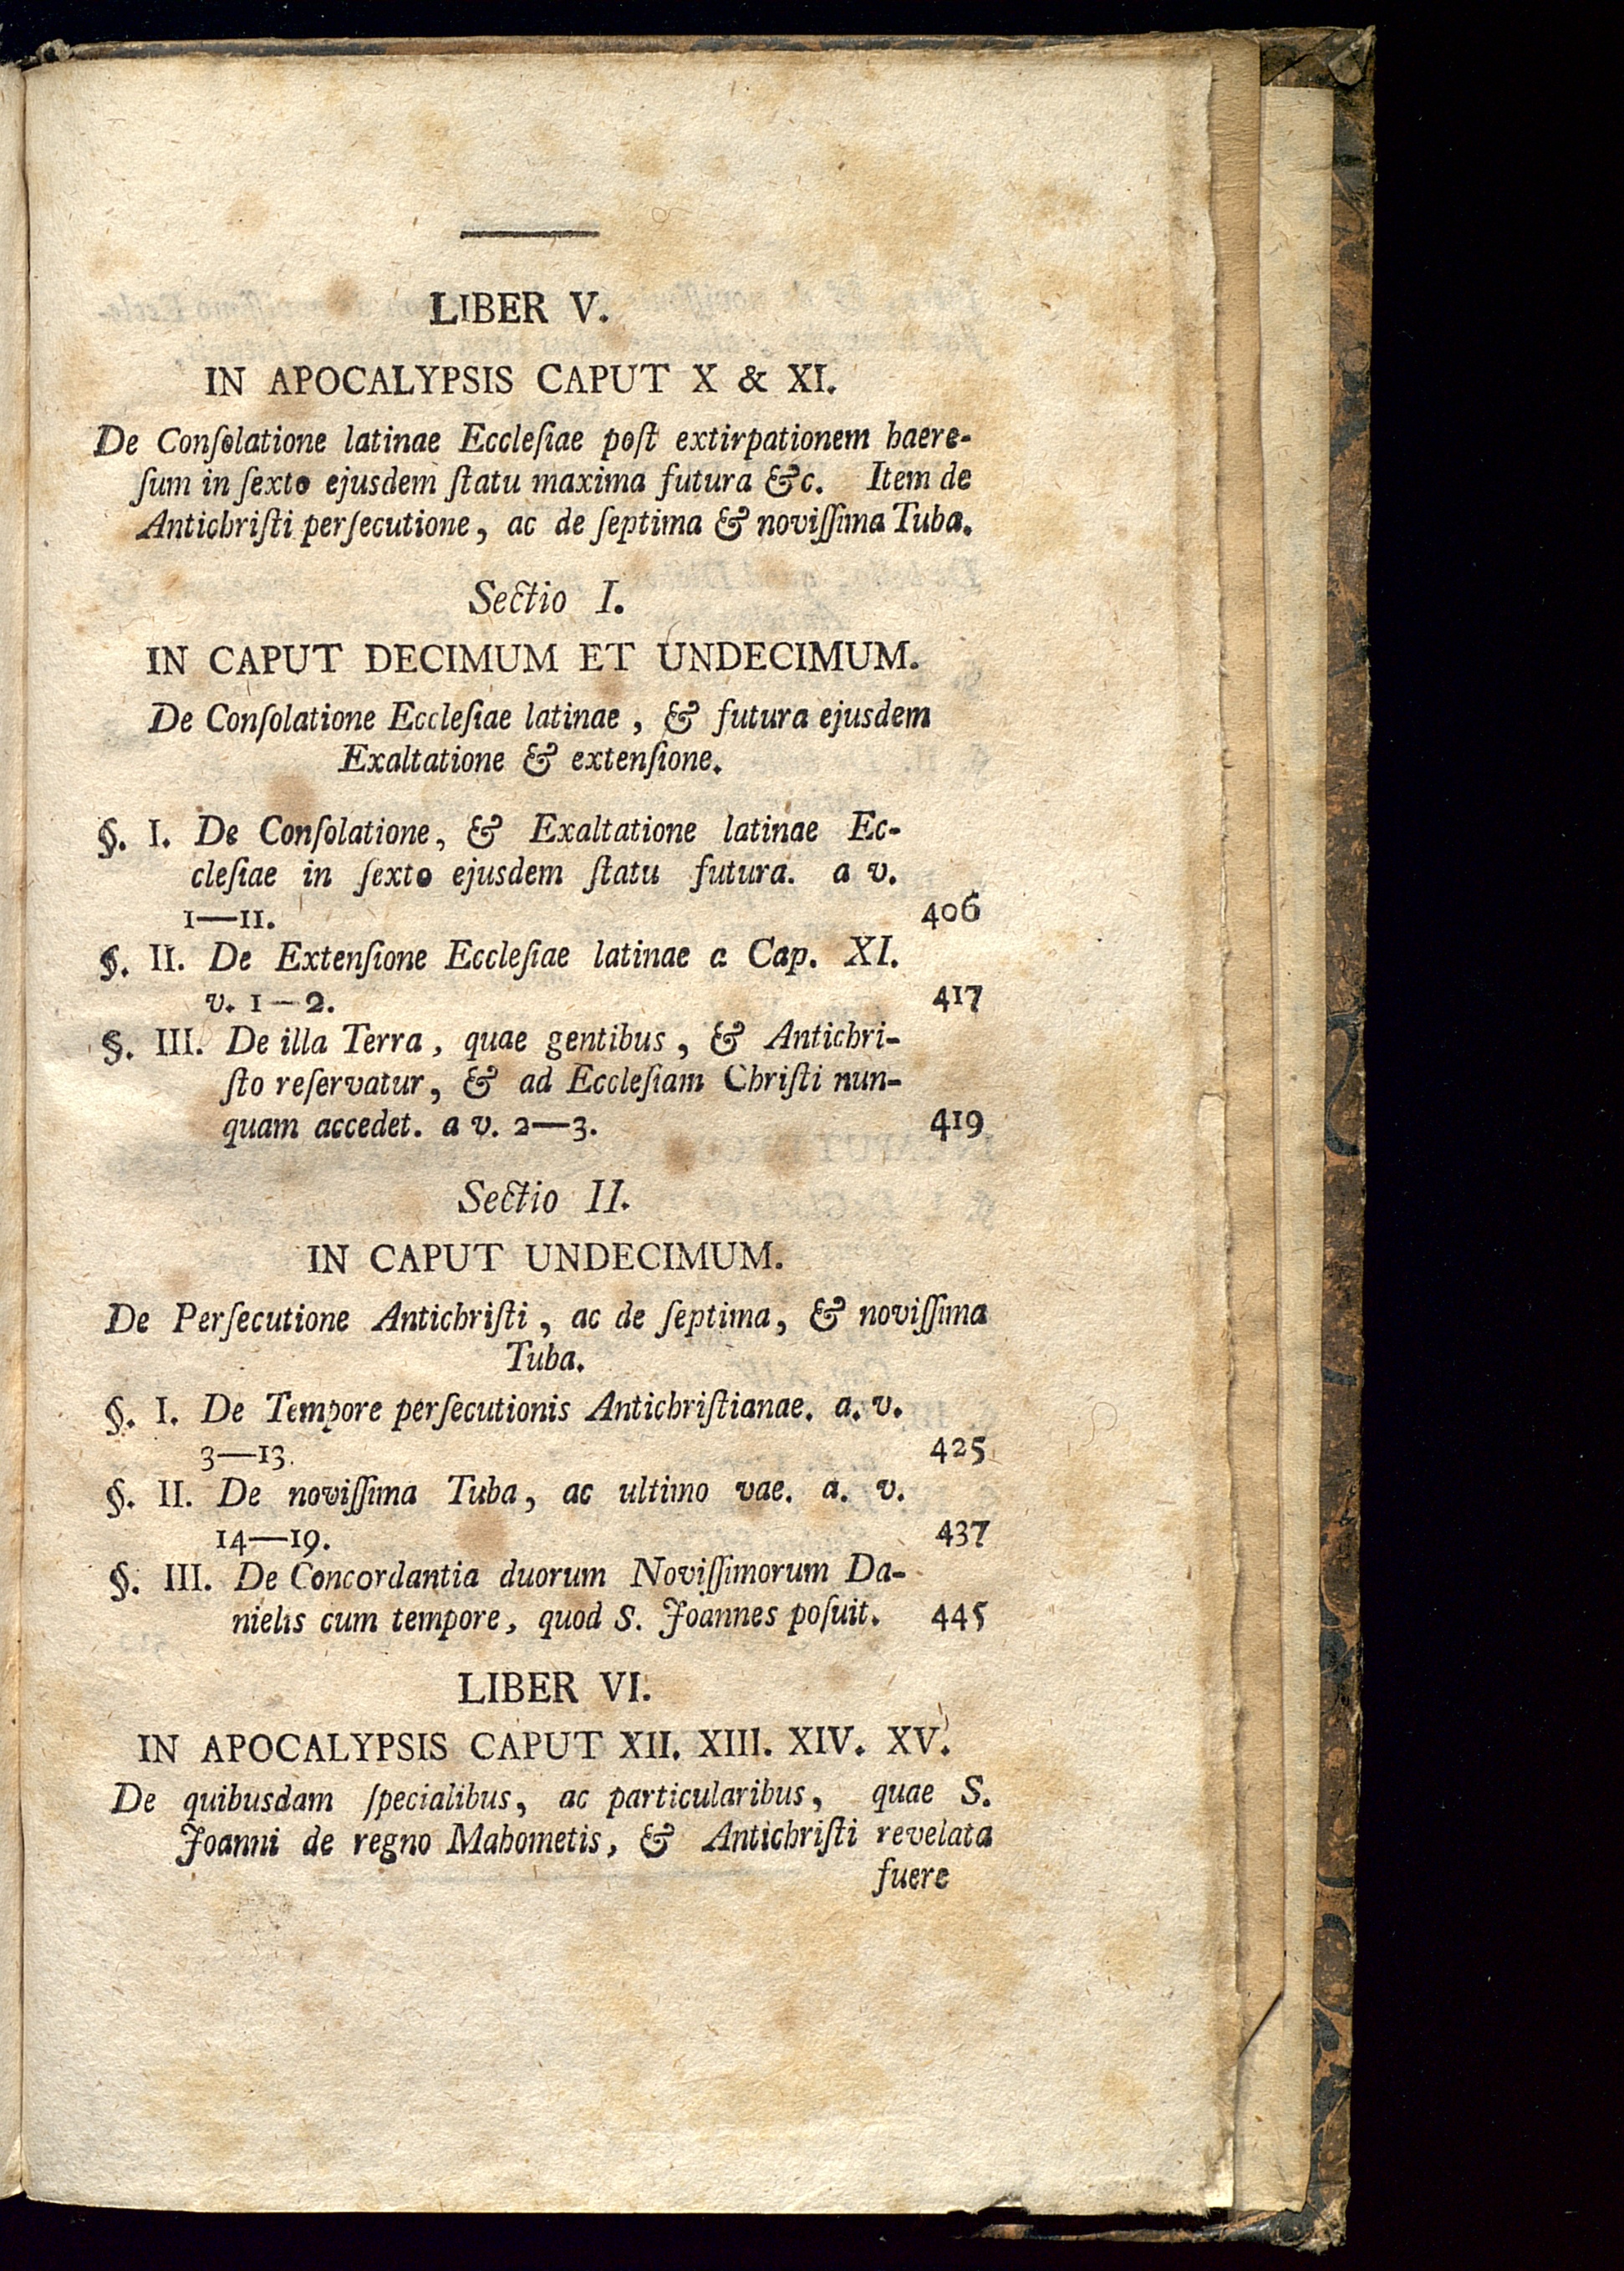 LIBER V.
IN APOCALYPSIS CAPUT X & XI.
De Conſolatione latinae Eccleſiae poſt extirpationem haere-
ſum in ſexto ejusdem ſtatu maxima futura &c. Item de
Antichriſti perſecutione, ac de ſeptima & noviſſima Tuba.
Sectio I.
IN CAPUT DECIMUM ET UNDECIMUM.
De Conſolatione Eccleſiae latinae, & futura ejusdem
Exaltatione & extenſione.
§. I. De Conſolatione, & Exaltatione latinae Ec-
cleſiae in ſexto ejusdem ſtatu futura. a v.
1—11. 406
§. II. De Extenſione Eccleſiae latinae a Cap. XI.
v. 1—2. 417
§. III. De illa Terra, quae gentibus, & Antichri-
ſto reſervatur, & ad Eccleſiam Chriſti nun-
quam accedet. a v. 2—3. 419
Sectio II.
IN CAPUT UNDECIMUM.
De Perſecutione Antichriſti, ac de ſeptima, & noviſſima
Tuba.
§. I. De Tempore perſecutionis Antichriſtianae. a. v.
3—13. 425
§. II. De noviſſima Tuba, ac ultimo vae. a. v.
14—19. 437
§. III. De Concordantia duorum Noviſſimorum Da-
nielis cum tempore, quod S. Joannes poſuit. 445
LIBER VI.
IN APOCALYPSIS CAPUT XII. XIII. XIV. XV.
De quibusdam ſpecialibus, ac particularibus, quae S.
Joanni de regno Mahometis, & Antichriſti revelata
fuere